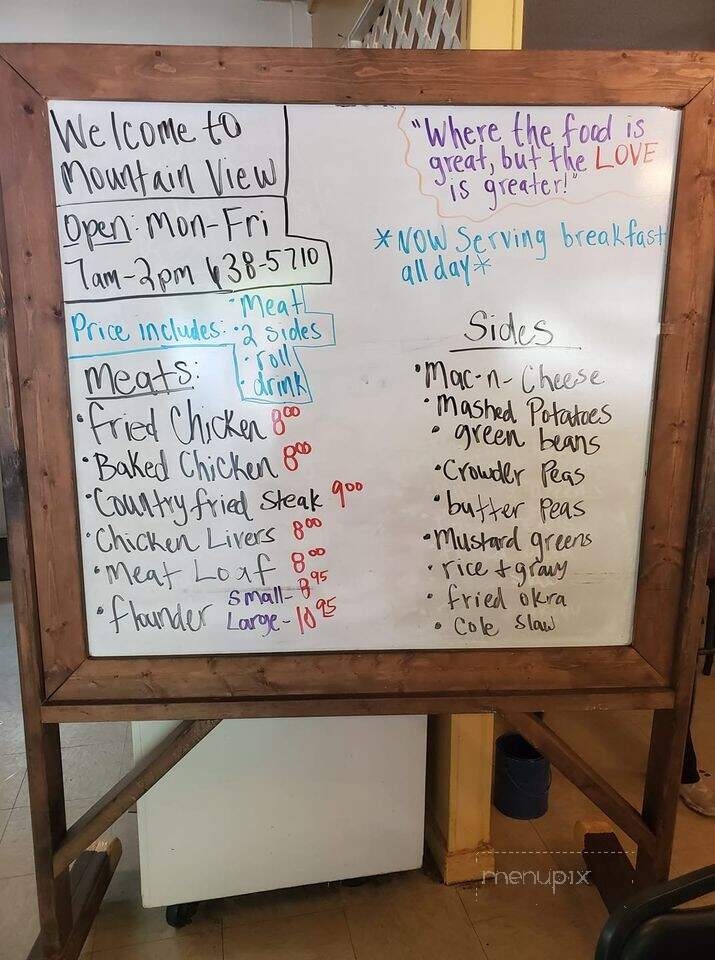 Welcome to
Mountain View
Open: Mon-Fri
7am-2pm 638-5710
Price includes: • Meat
• 2 sides
• roll
• drink
Meats:
• fried Chicken 8⁰⁰
• Baked Chicken 8⁰⁰
• Country fried Steak 9⁰⁰
• Chicken Livers 8⁰⁰
• Meat Loaf 8⁰⁰
• flounder Small- 8⁹⁵
Large- 10⁹⁵
"Where the food is
great, but the LOVE
is greater!"
*NOW Serving breakfast
all day*
Sides
• Mac-n-Cheese
• Mashed Potatoes
• green beans
• Crowder Peas
• butter Peas
• Mustard greens
• rice + gravy
• fried okra
• Cole Slaw
menupix